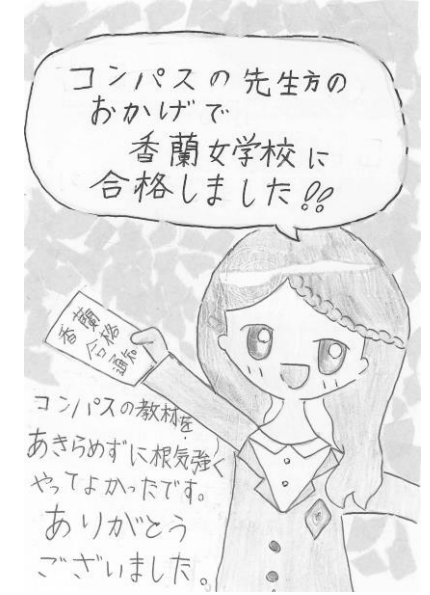 コンパスの先生方の
おかげで
香蘭女学校に
合格しました!!
香蘭
合格
通知
コンパスの教材を
あきらめずに根気強く
やってよかったです。
ありがとう
ございました。